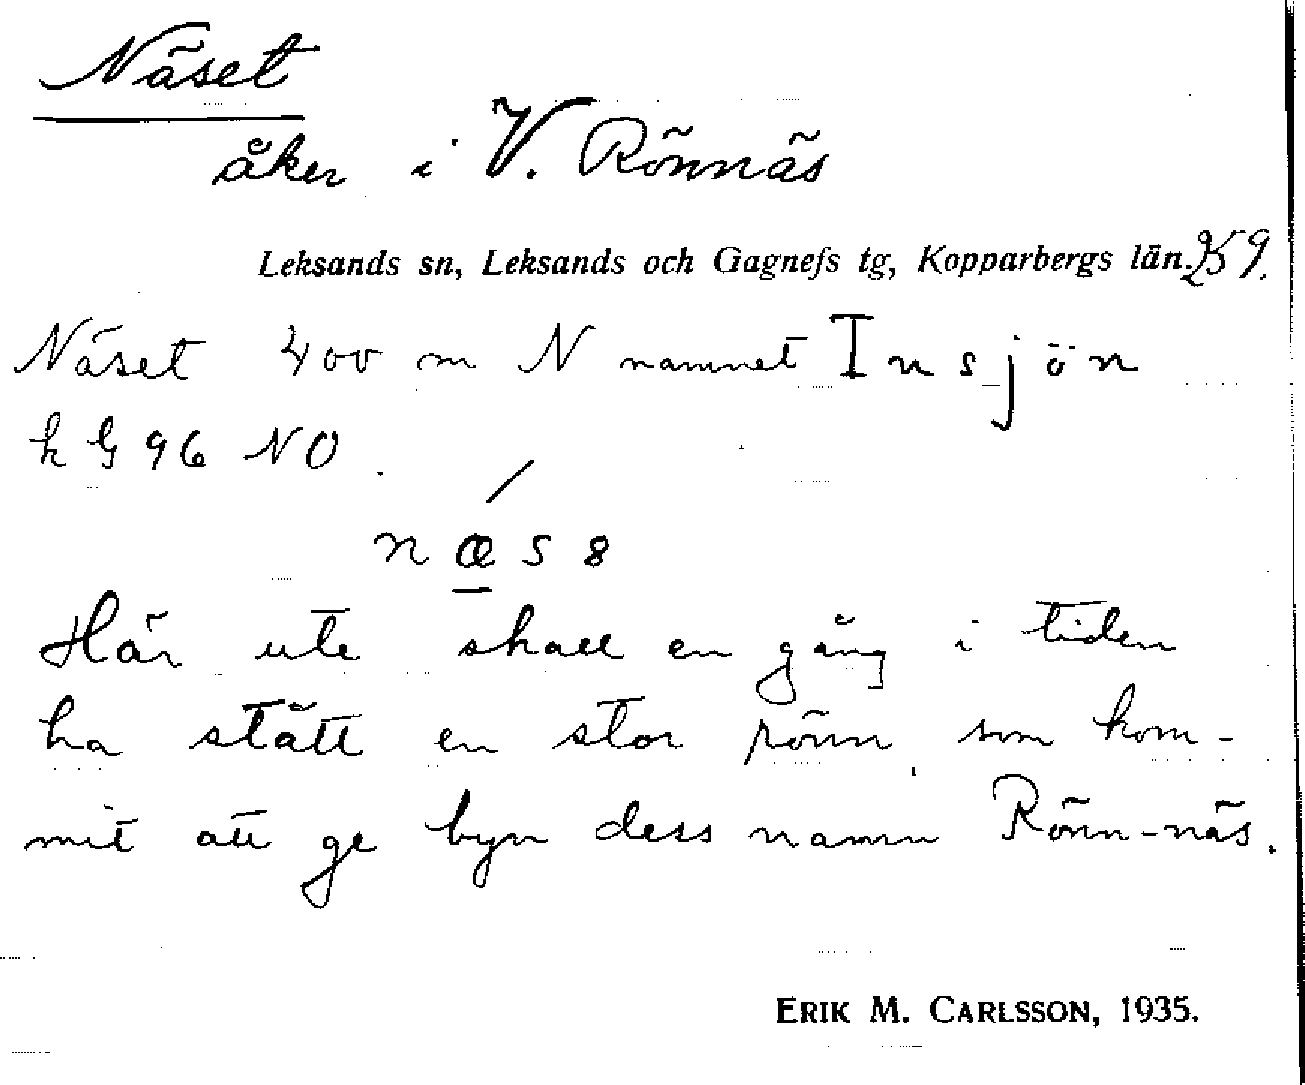 Näset
åker i V. Rönnäs
Leksands sn, Leksands och Gagnefs tg, Kopparbergs län. 259.
Näset 400 m N namnet Insjön
k G 96 NO.
Här ute skall en gång i tiden
ha stått en stor rönn, som kom-
mit att ge byn dess namn Rönn-näs.
ERIK M. CARLSSON, 1935.